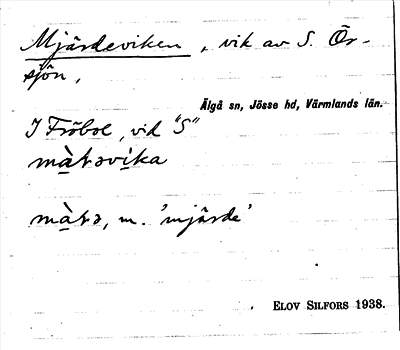 Mjärdeviken, vik av S. Ör-
sjön,
Älgå sn, Jösse hd, Värmlands län.
I Fröbol, vid "S"
, m. 'mjärde'
ELOV SILFORS 1938.